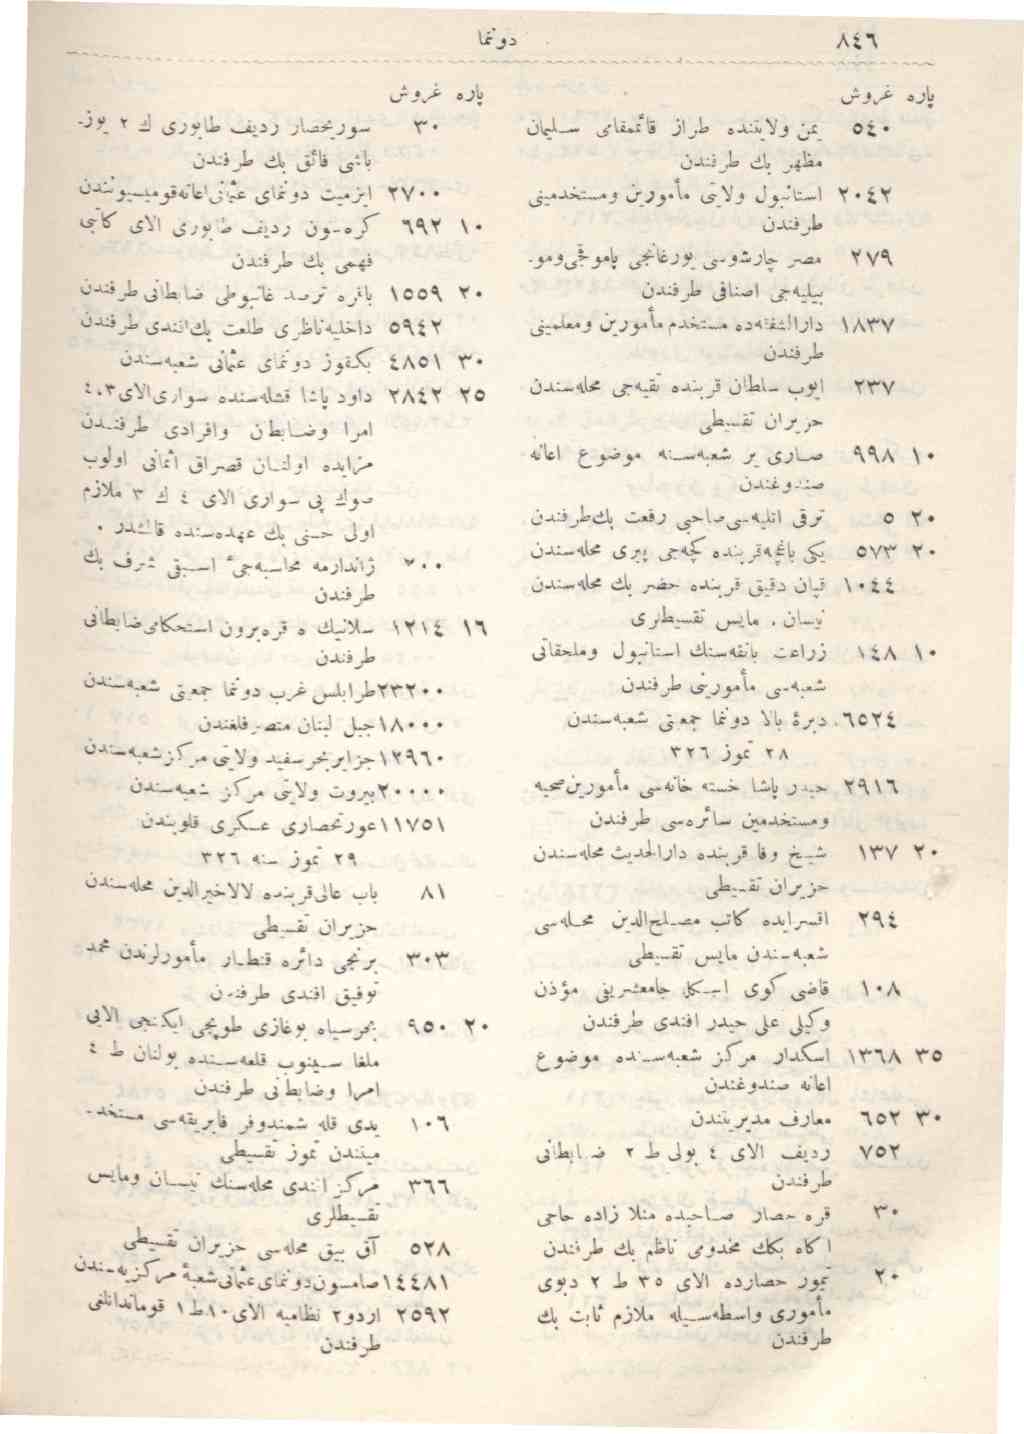 ٨٤٦ دونما
پاره غروش
٥٤٠ يمن ولايتنده طراز قائممقامى سليمان
مظهر بك طرفندن
٢٠٤٢ استانبول ولايتى مأمورين ومستخدمينى
طرفندن
٢٧٩ مصر چارشوسى يورغانجى پاموقجى ومو.
بيليه‌جى اصنافى طرفندن
١٨٣٧ دارالشفقه‌ده مستخدم مأمورين ومعلمينى
طرفندن
٢٣٧ ايوب سلطان قربنده تقيه‌جى محله‌سندن
حزيران تقسيطى
١٠ ٩٩٨ صارى ير شعبه‌سنه موضوع اعانه
صندوغندن
٢٠ ٥ ترقى آتليه‌سى صاحبى رفعت بك طرفندن
٢٠ ٥٧٣ يكى باغچه قربنده كچه‌جى پيرى محله‌سندن
١٠٤٤ قپان دقيق قربنده خضر بك محله‌سندن
نيسان ، مايس تقسيطلرى
١٠ ١٤٨ زراعت بانقه‌سنك استانبول وملحقاتى
شعبه‌سى مأمورينى طرفندن
٦٥٢٤ ديرۀ بالا دونما جمعيتى شعبه‌سندن
٢٨ تموز ٣٢٦
٢٩١٦ حيدر پاشا خسته خانه‌سى مأمورين صحيه
ومستخدمين سائره‌سى طرفندن
٢٠ ١٣٧ شيخ وفا قربنده دارالحديث محله‌سندن
حزيران تقسيطى
٢٩٤ اقسرايده كاتب مصلح‌الدين محله‌سى
شعبه‌سندن مايس تقسيطى
١٠٨ قاضى كوى اسكله جامعشريفى مؤذن
وكيلى على حيدر افندى طرفندن
٣٥ ١٣٦٨ اسكدار مركز شعبه‌سنده موضوع
اعانه صندوغندن
٣٠ ٦٥٢ معارف مديريتندن
٧٥٢ رديف الاى ٤ بولى ط ٢ ضابطانى
طرفندن
٣٠ قره حصار صاحبده منلا زاده حاجى
آكاه بكك مخدومى ناظم بك طرفندن
٢٠ تيمور حصارده الاى ٣٥ ط ٢ دبوى
مأمورى واسطه‌سيله ملازم ثابت بك
طرفندن
پاره غروش
٣٠ سوريحصار رديف طابورى ك ٢ يوز-
باشى فائق بك طرفندن
٢٧٠٠ ايزميت دونماى عثمانى اعانه قوميسيونندن
١٠ ٦٩٢ كره‌سون رديف طابورى الاى كاتبى
فهمى بك طرفندن
٢٠ ١٥٥٩ باقره ترصد غانبوطى ضابطانى طرفندن
٥٩٤٢ داخليه ناظرى طلعت بك افندى طرفندن
٣٠ ٤٨٥١ بكقوز دونماى عثمانى شعبه‌سندن
٢٥ ٢٨٤٢ داود پاشا قشله‌سنده سوارى الاى ٤،٣
امرا وضابطان وافرادى طرفندن
مزايده اولنان قصراق اثمانى اولوب
صوك پى سوارى الاى ٤ ك ٣ ملازم
اولى حسنى بك عهده‌سنده قالشدر .
٢٠٠ ژاندارمه محاسبه‌جئ اسبقى شرف بك
طرفندن
١٦ ١٢١٤ سلانيك ه قره‌برون استحكامى ضابطانى
طرفندن
٢٣٢٠٠ طرابلس غرب دونما جمعيتى شعبه‌سندن
١٨٠٠٠ جبل لبنان متصرفلغندن
١٢٩٦٠ جزاير بحر سفيد ولايتى مركز شعبه‌سندن
٢٠٠٠٠ بيروت ولايتى مركز شعبه‌سندن
١١٧٥١ عورتحصارى عسكرى قلوبندن
٢٩ تموز سنه ٣٢٦
٨١ باب عالى قربنده لالا خيرالدين محله‌سندن
حزيران تقسيطى
٣٠٣ برنجى دائره قنطار مأمورلرندن محمد
توفيق افندى طرفندن
٢٠ ٩٥٠ بحر سياه بوغازى طوپجى ايكنجى الايى
ملغا سينوب قلعه‌سنده بولنان ط ٤
امرا وضابطانى طرفندن
١٠٦ يدى قله شمندوفر فابريقه‌سى مستخد-
ميتندن تموز تقسيطى
٣٦٦ مركز افندى محله‌سنك نيسان ومايس
تقسيطلرى
٥٢٨ آق بيق محله‌سى حزيران تقسيطى
١٤٤٨١ صامسون دونماى عثمانى شعبۀ مركزيه‌سندن
٢٥٩٢ اردو ٢ نظاميه الاى ١٠ ط ١ قوماندانلغى
طرفندن